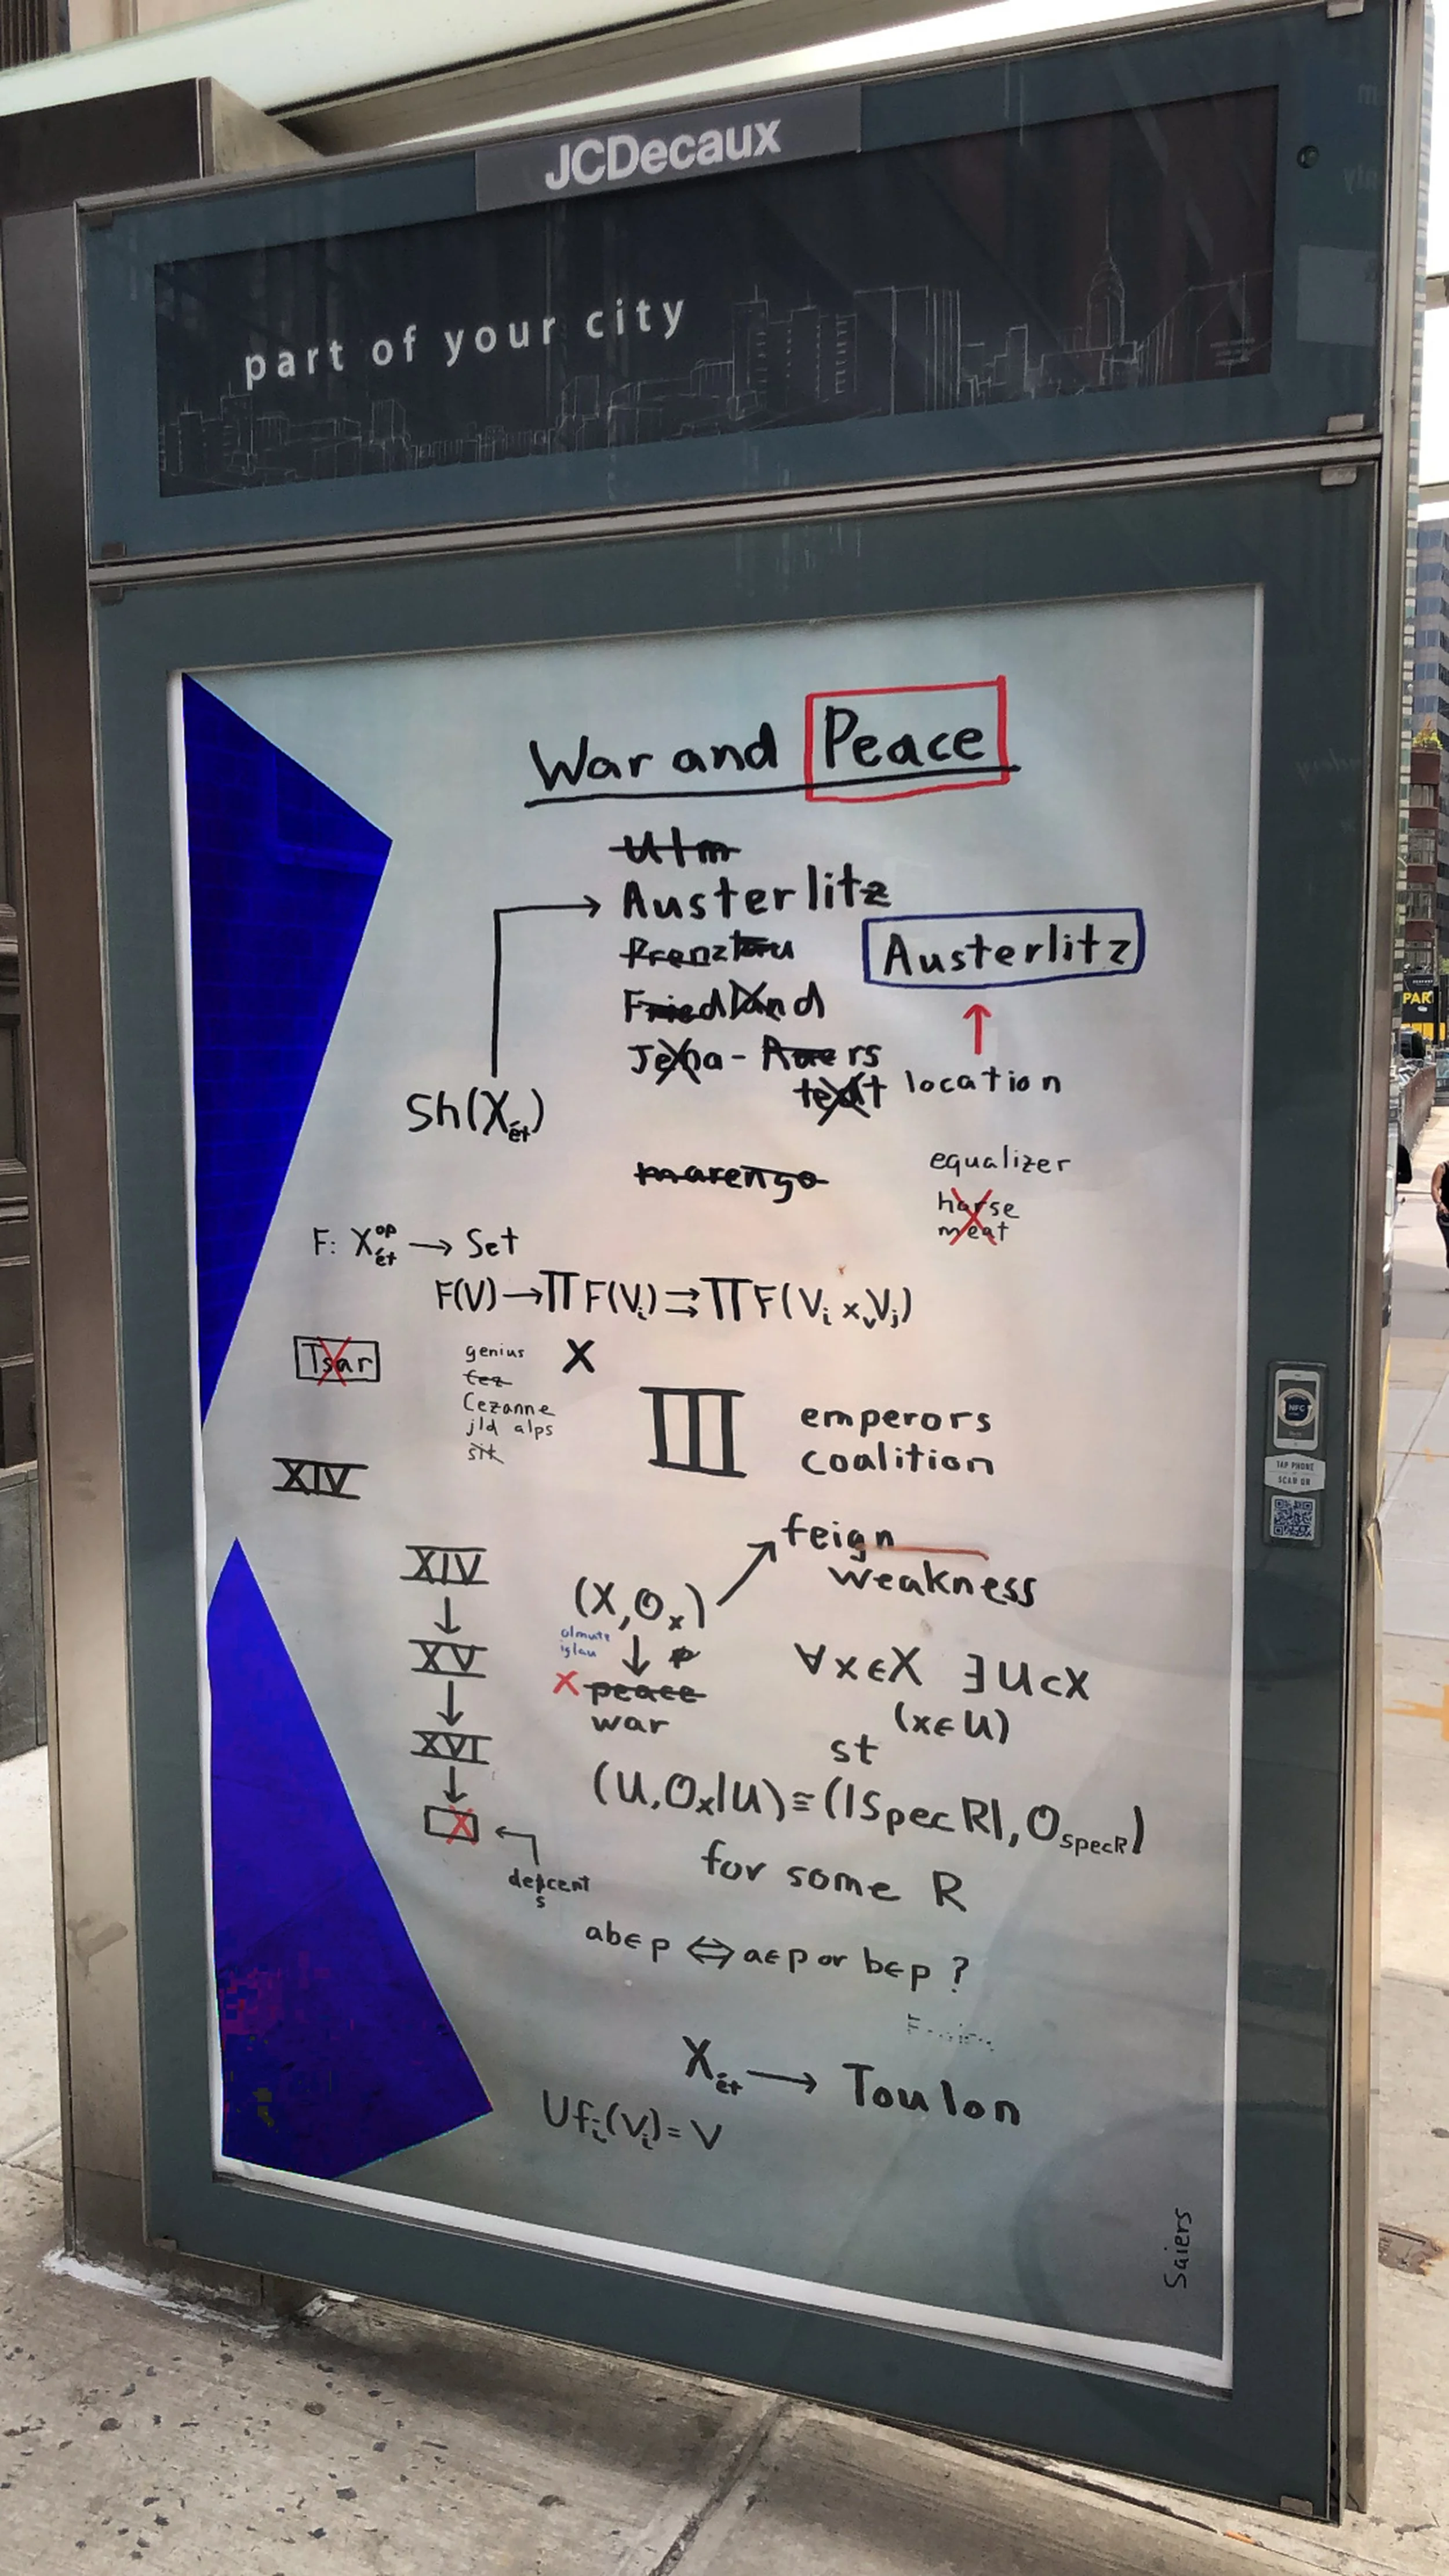 JCDecaux
part of your city
War and Peace
Ulm
Austerlitz
Prenzlau
Austerlitz
Friedland
Jena - Auers
tedt
location
Sh(X_ét)
marengo
equalizer
horse
meat
F: X_ét^op → Set
F(V) → ΠF(V_i) ⇉ ΠF(V_i ×_V V_j)
Tsar
genius
fez
Cezanne
jld alps
X
III
emperors
coalition
XIV
feign
weakness
XIV
↓
XV
↓
XVI
↓
X
(X, O_X)
olmutz
iglau
↓ p
X peace
war
∀x∈X ∃U⊂X
(x∈U)
st
(U, O_X|U) ≅ (|Spec R|, O_Spec R)
for some R
descent
s
ab∈p ⇔ a∈p or b∈p ?
X_ét → Toulon
U f_i(V_i) = V
Saiers
PAR
NFC
TAP PHONE
SCAN QR